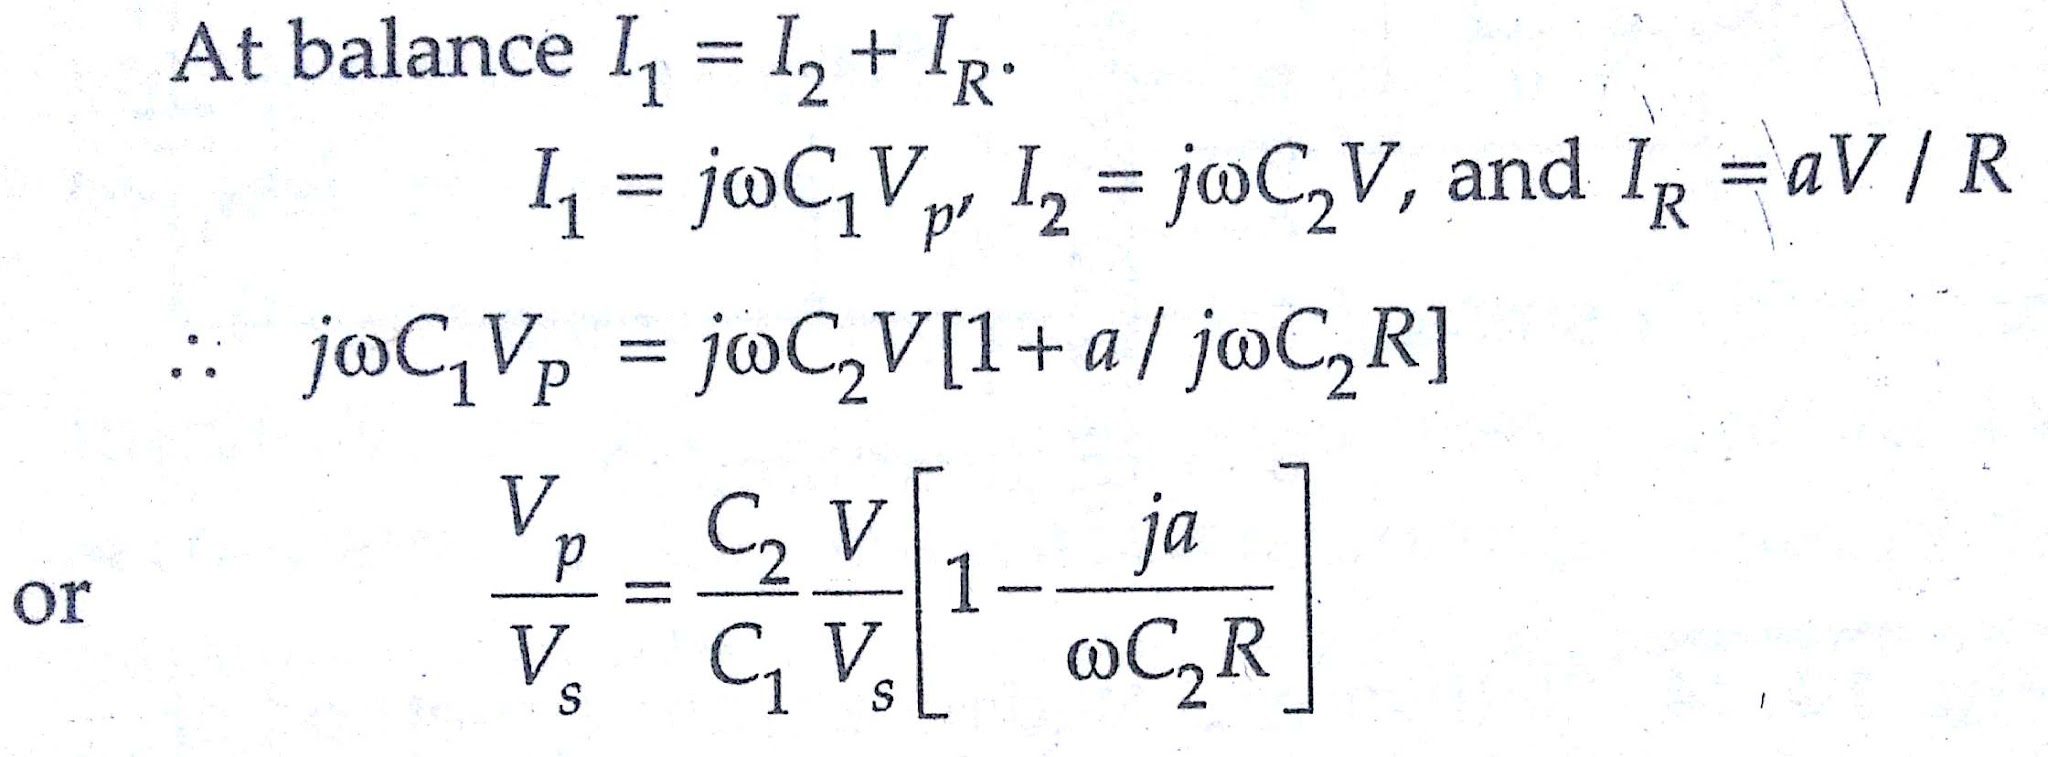 At balance I₁ = I₂ + I_R.
I₁ = jωC₁V_p, I₂ = jωC₂V, and I_R = aV / R
∴ jωC₁V_P = jωC₂V[1 + a / jωC₂R]
or V_p/V_s = C₂/C₁ V/V_s [1 − ja/ωC₂R]